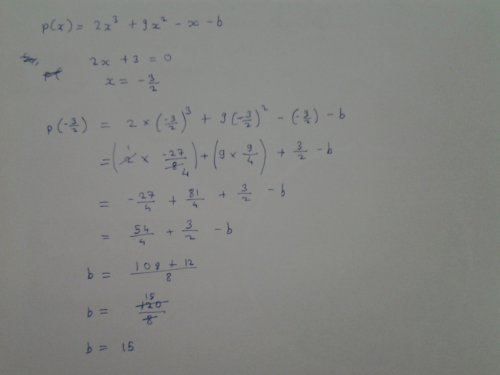 p(x) = 2x³ + 9x² - x - b
2x + 3 = 0
x = -3/2
p(-3/2) = 2 × (-3/2)³ + 9(-3/2)² - (-3/2) - b
= (2 1 × -27/8 4) + (9 × 9/4) + 3/2 - b
= -27/4 + 81/4 + 3/2 - b
= 54/4 + 3/2 - b
b = 108 + 12/8
b = 15 120/8
b = 15